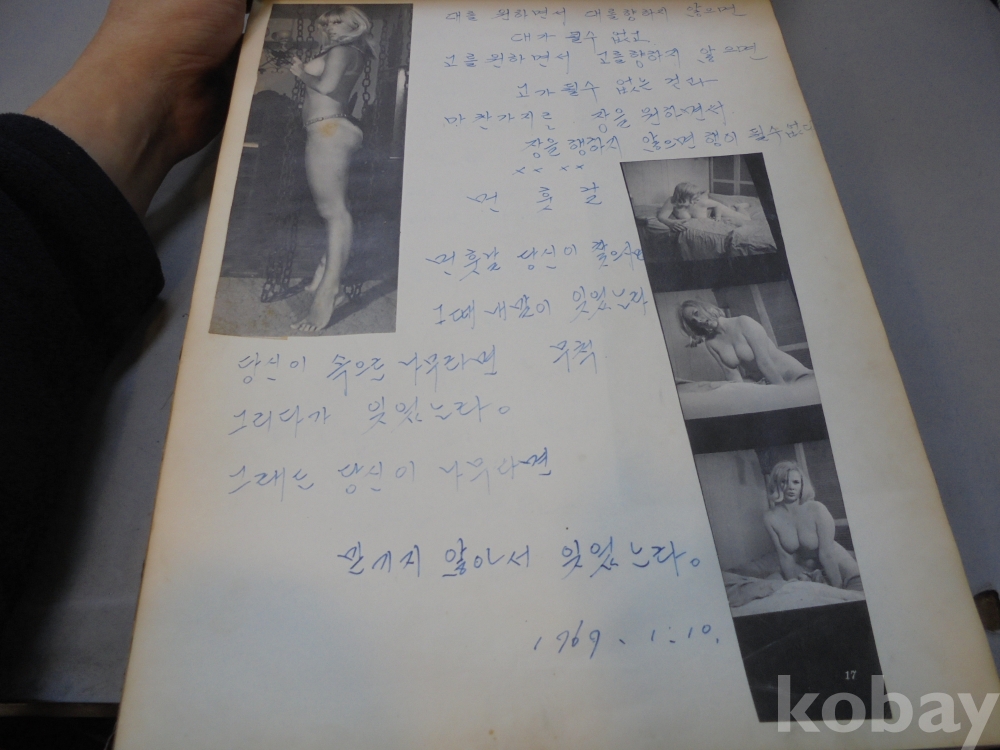 대를 원하면서 대를 향하지 않으면
대가 될수 없고
고를 원하면서 고를 향하지 않으면
고가 될수 없는 것과
마찬가지로 장을 원하면서
장을 행하지 않으면 행이 될수 없다
x x x x
먼 훗날
먼 훗날 당신이 찾으시면
그때 내 말이 잊었노라
당신이 속으로 나무라면 무척
그리다가 잊었노라。
그래도 당신이 나무라면
믿기지 않아서 잊었노라。
1969. 1. 10.
17
kobay